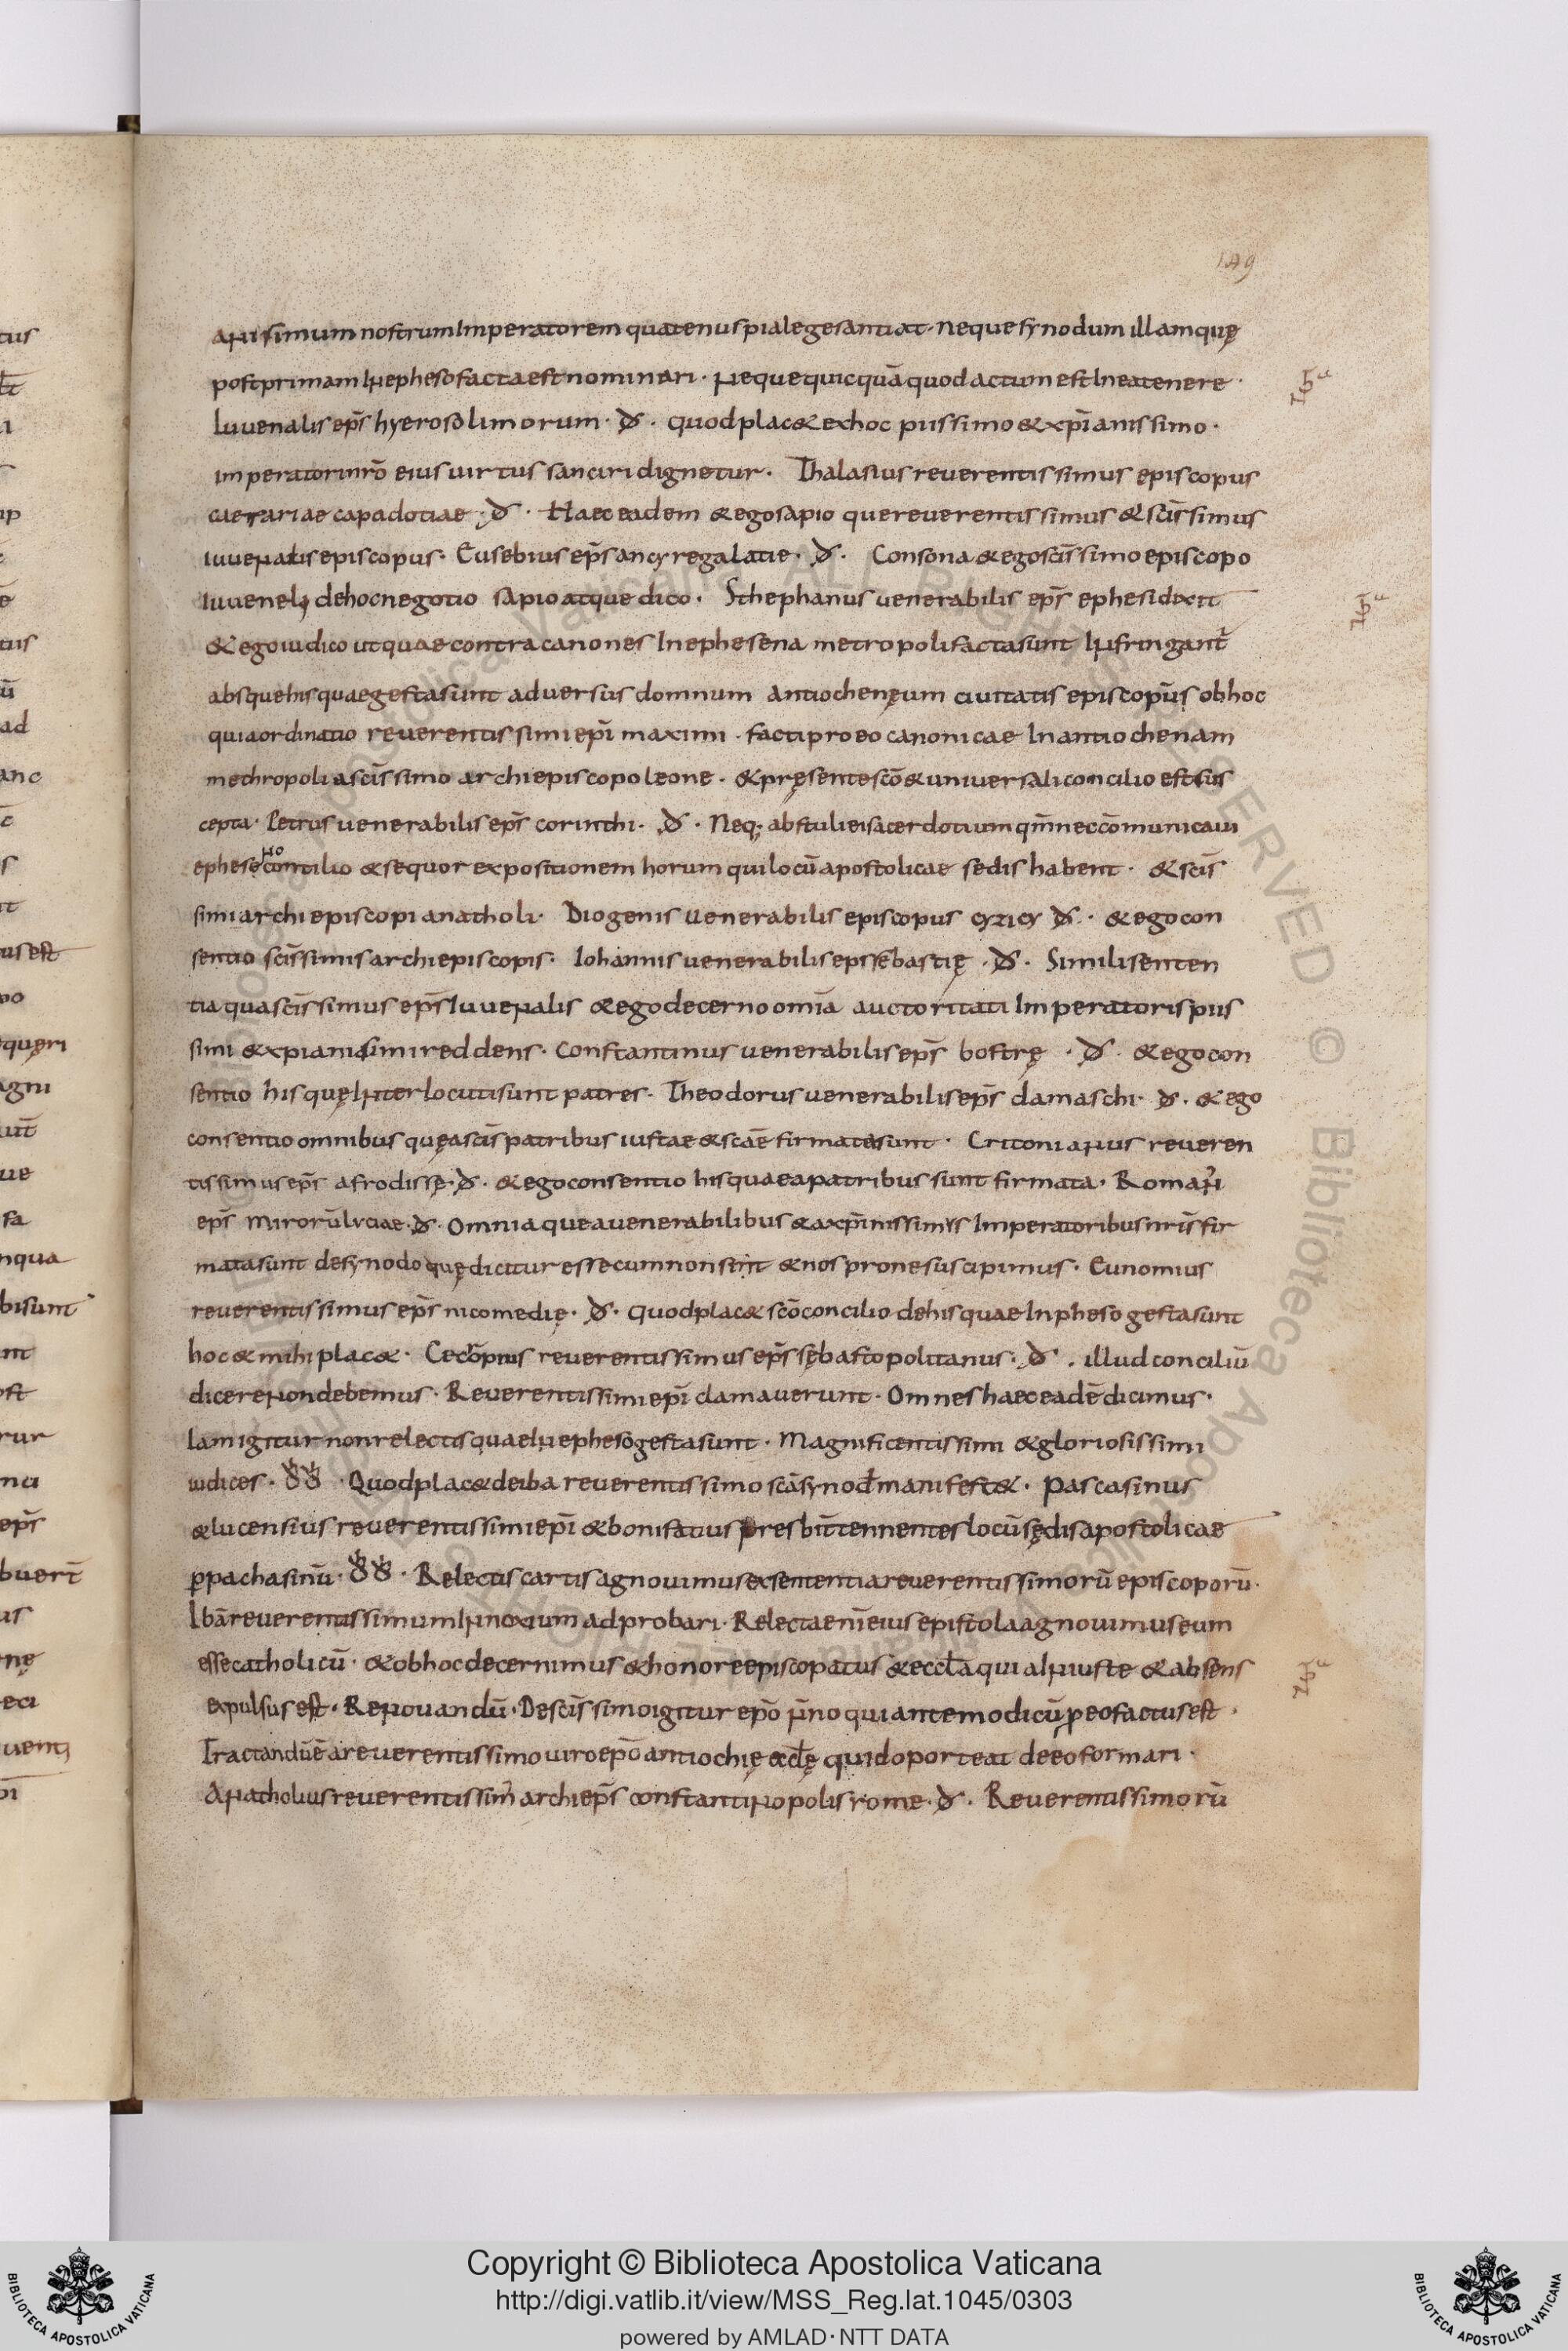 149
anisimum nostrum Imperatorem quatenus pia lege santiat. neque synodum illam quę
post primam In epheso facta est nominari. neque quicquā quod actum est In ea tenere.
Iuuenalis ep̄s hyerosolimorum. đ. quod plac& ex hoc piissimo & xp̄ianissimo.
imperatori nr̄o eius uirtus sanciri dignetur. Thalasius reuerentissimus episcopus
caesariae capadotiae. đ. Haec eadem & ego sapio que reuerentissimus & sc̄issimus
iuuenalis episcopus. Eusebius ep̄s ancyre galatie. đ. Consona & ego sc̄issimo episcopo
iuuenely de hoc negotio sapio atque dico. Sthephanus uenerabilis ep̄s ephesi dixit
& ego iudico ut quae contra canones In ephesena metropoli facta sunt Infringant̄
absque his quae gesta sunt aduersus domnum antiochenęum ciuitatis episcopūs ob hoc
quia ordinatio reuerentissimi ep̄i maximi. facti pro eo canonicae In antiochenam
methropoli a sc̄issimo archiepiscopo leone. & pręsente sc̄o & uniuersali concilio est sus
cepta. Petrus uenerabilis ep̄s corinthi. đ. Neq; abstuli ei sacerdotium qm̄ nec cōmunicaui
epheseno concilio & sequor expositionem horum qui locū apostolicae sedis habent. & sc̄is
simi archiepiscopi anatholi. Diogenis uenerabilis episcopus cyzicy đ. & ego con
sentio sc̄issimis archiepiscopis. Iohannis uenerabilis eps sebastię. đ. Simili senten
tia qua sc̄issimus ep̄s Iuuenalis & ego decerno omīa auctoritati Imperatoris piis
simi & xpianissimi reddens. Constantinus uenerabilis ep̄s bostrę. đ. & ego con
sentio his quę Interlocuti sunt patres. Theodorus uenerabilis ep̄s damaschi. đ. & ego
consentio omnibus quę a sc̄is patribus iustae & scāe firmata sunt. Critonianus reueren
tissimus ep̄s afrodissę. đ. & ego consentio his quae a patribus sunt firmata. Roman̄
ep̄s mirorū lyciae. đ. Omnia que a uenerabilibus & a xp̄inissimis Imperatoribus nr̄is fir
mata sunt de synodo quę dicitur esse cum non sint & nos prone suscipimus. Eunomius
reuerentissimus ep̄s nicomedię. đ. quod plac& sc̄o concilio de his quae In pheso gesta sunt
hoc & mihi plac&. Cecropius reuerentissimus ep̄s sębastopolitanus. đ. illud conciliū
dicere non debemus. Reuerentissimi ep̄i clamauerunt. Omnes haec eadē dicimus.
Iam igitur non relectis quae In epheso gesta sunt. Magnificentissimi & gloriosissimi
iudices. đđ. Quod plac& de iba reuerentissimo scā synod̄ manifest&. Pascasinus
& lucensius reuerentissimi ep̄i & bonifatius presbit̄ tennentes locū sędis apostolicae
p pachasinū. đđ. Relectis cartis agnouimus ex sententia reuerentissimorū episcoporū.
Ibā reuerentissimum Innoxium adprobari. Relecta enī eius epistola agnouimus eum
esse catholicū. & ob hoc decernimus & honore episcopatus & eccl̄a qui a Iniuste & absens
expulsus est. Renouandū. De sc̄issimo igitur ep̄o n̄no qui ante modicū p eo factus est.
Tractandū ē a reuerentissimo uiro ep̄o antiochię ęcl̄ę quid oporteat de eo formari.
Anatholius reuerentissim̄ archiep̄s constantinopolis rome. đ. Reuerentissimorū
Copyright © Biblioteca Apostolica Vaticana
http://digi.vatlib.it/view/MSS_Reg.lat.1045/0303
powered by AMLAD·NTT DATA